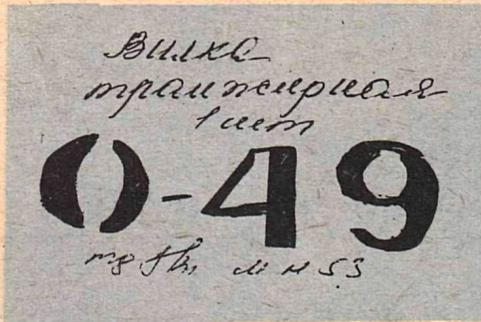 Вилка
транжирная
1 шт
0-49
м н 53